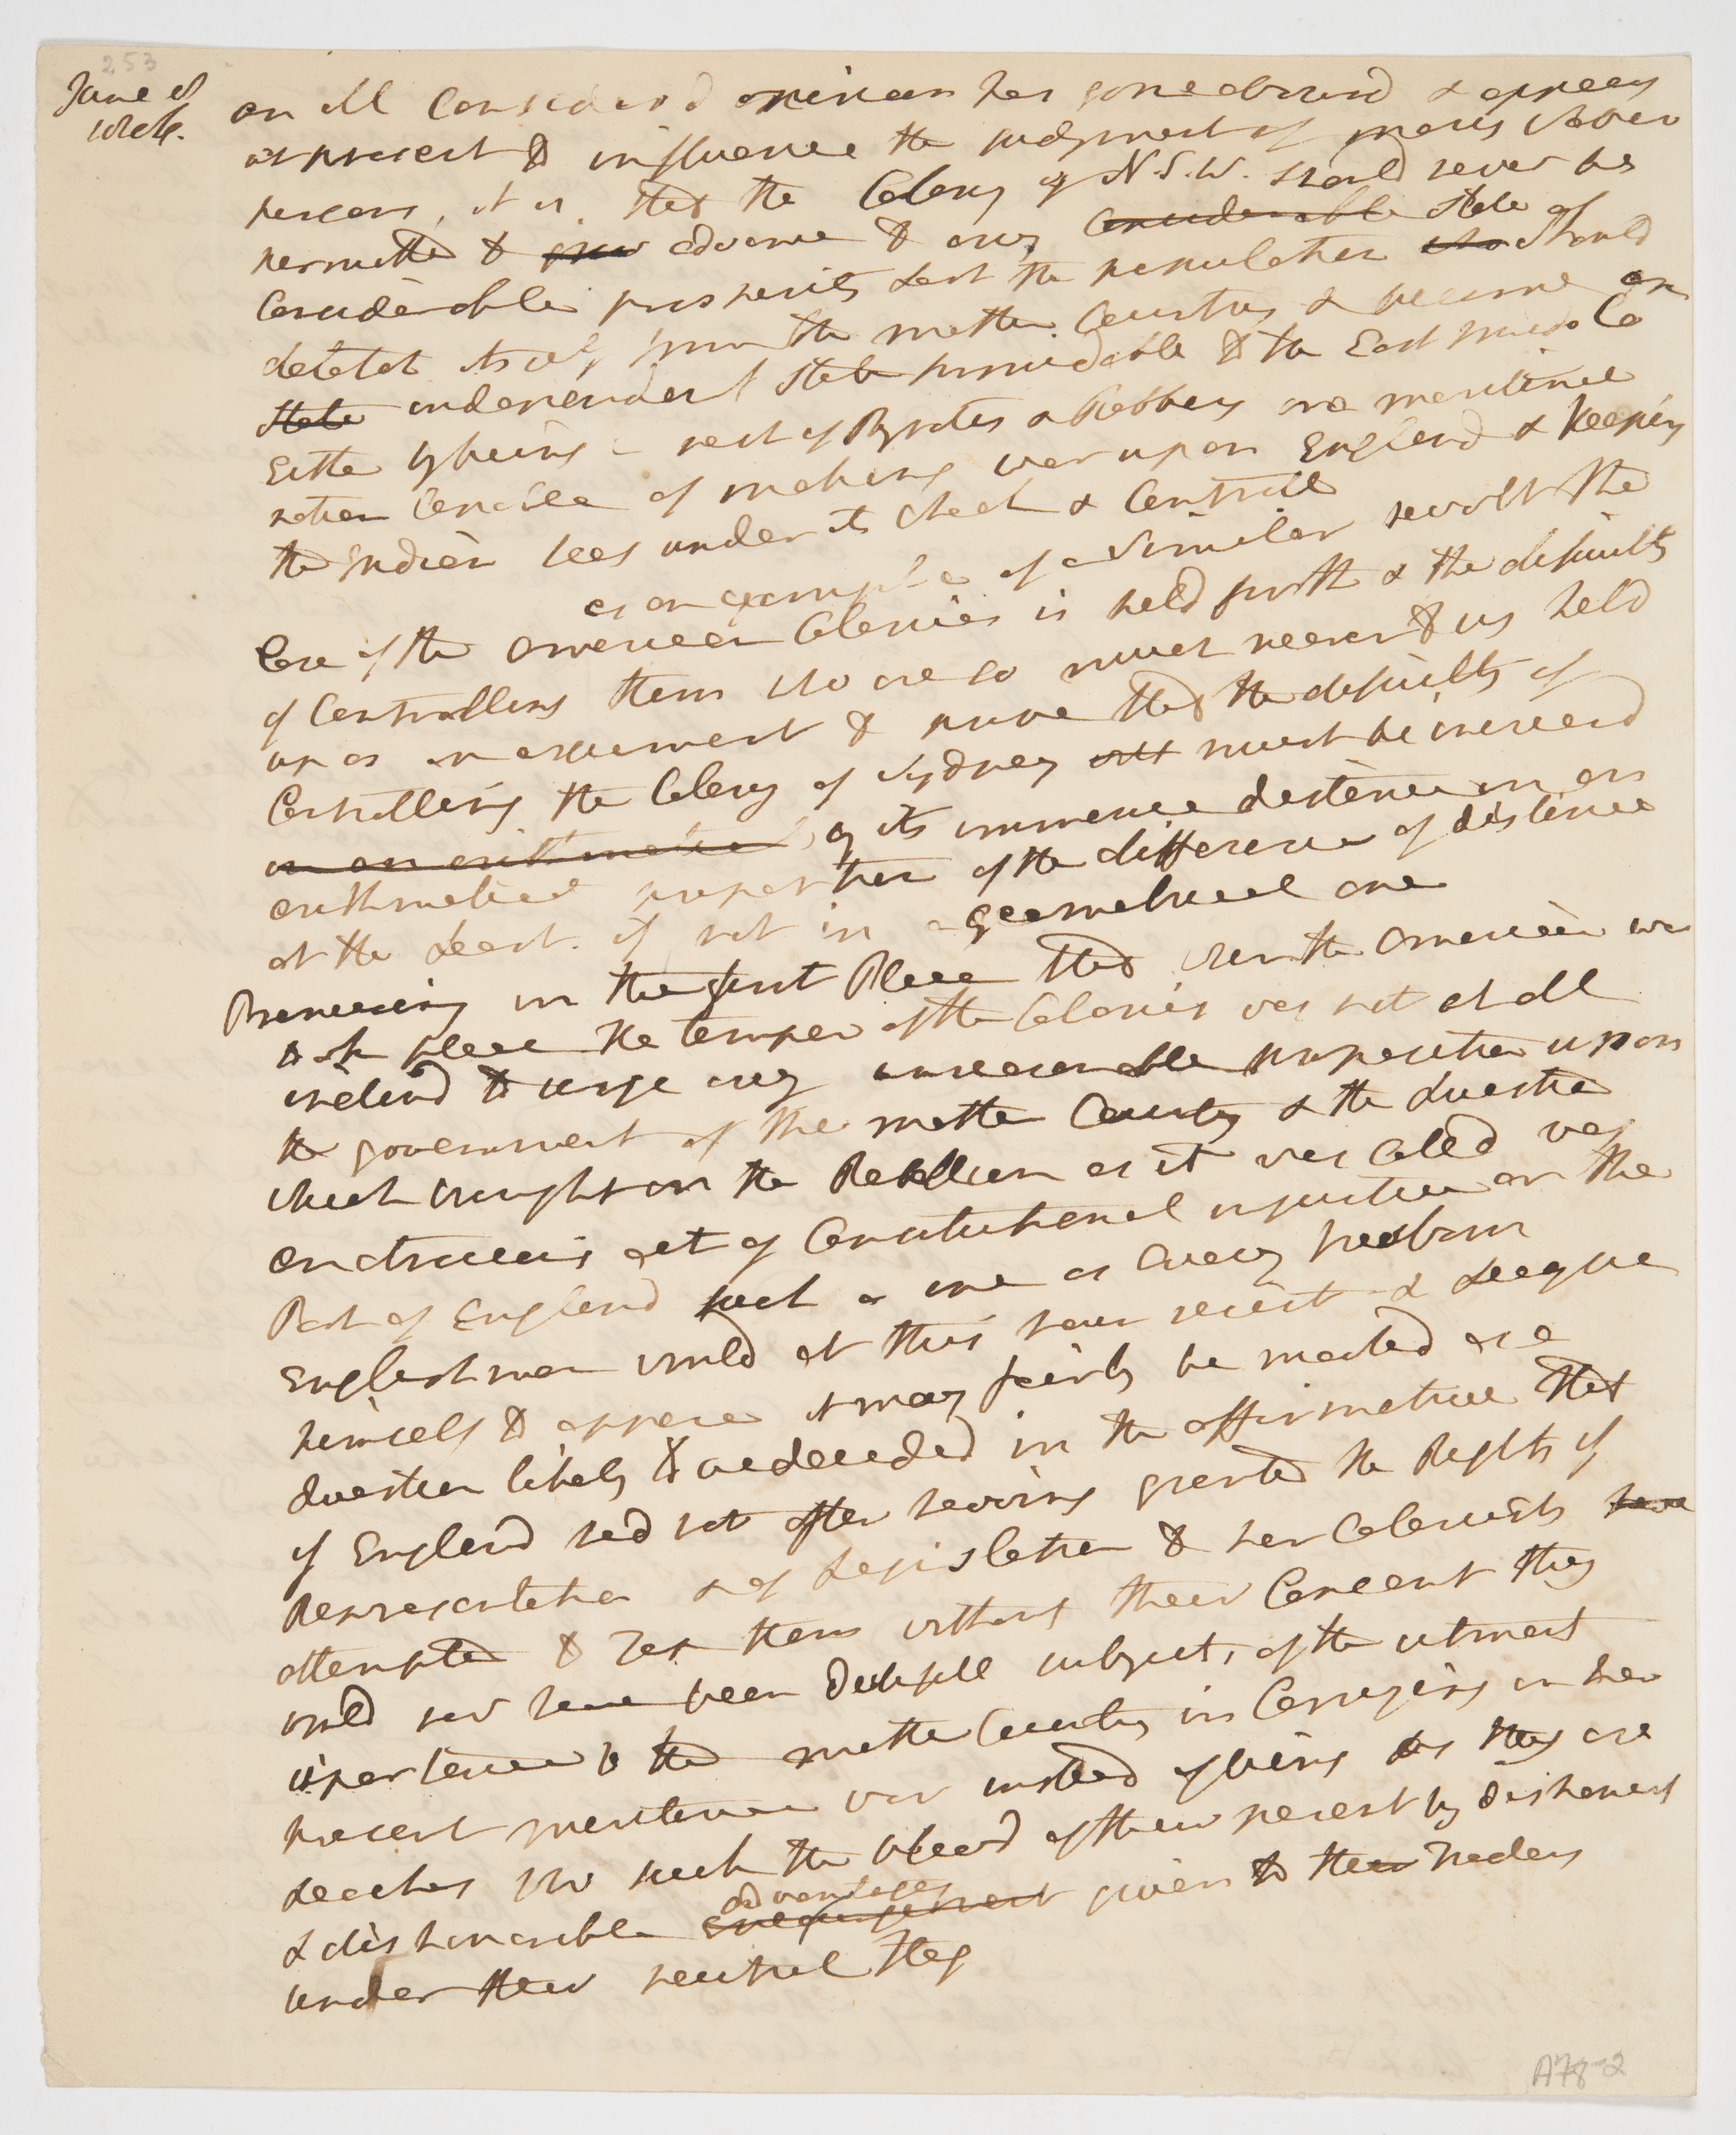 253
June 8
wrote.
an ill Considerd opinion has gone abroad & appears
at present to influence the judgment of many clever
persons, it is, that the Colony of N.S.W. should never be
permitted to grow advance to any Considerable state of
Considerable prosperity Lest the population who should
detatch itself from the mother Country & become an
State independent State formidable to the East India Co
Either by being a nest of Pyrates & Robbers or a maritime
nation Capable of making war upon England & Keeping
the Indian seas under its Check & Controll
as an example of a Similar revolt the
Case of the American Colonies is held forth & the dificulty
of Controlling them who are so much nearer to us held
up as an argument to prove that the dificulty of
Controlling the Colony of Sydney must be increasd
in an arithmetical by its immense distance in an
arithmetical proportion of the difference of distance
at the Least. if not in a geometrical one
Premising in the first Place that when the American war
took place the temper of the Colonies was not at all
inclind to urge any unreasonable proposition upon
the government of the mother Country & the Question
which brought on the Rebellion as it was calld was
an atrocious act of Constitutional injustice on the
Part of England such a one as every freeborn
Englishman would at this hour resist & League
himself to oppose it may fairly be mooted as a
Question likely to be decided in the affirmative that
if England had not after having granted the Rights of
Representation & of Legislation to her Colonists have
attempted to Tax them without their Consent they
would now have been Dutifull subjects, of the utmost
importance to the mother Country in Carrying on her
present maritime war instead of being as they are
Leaches who suck the blood of their parent by dishonest
advantages
& dishonorable Encouragement given to their Traders
under their neutral flag
A78-2